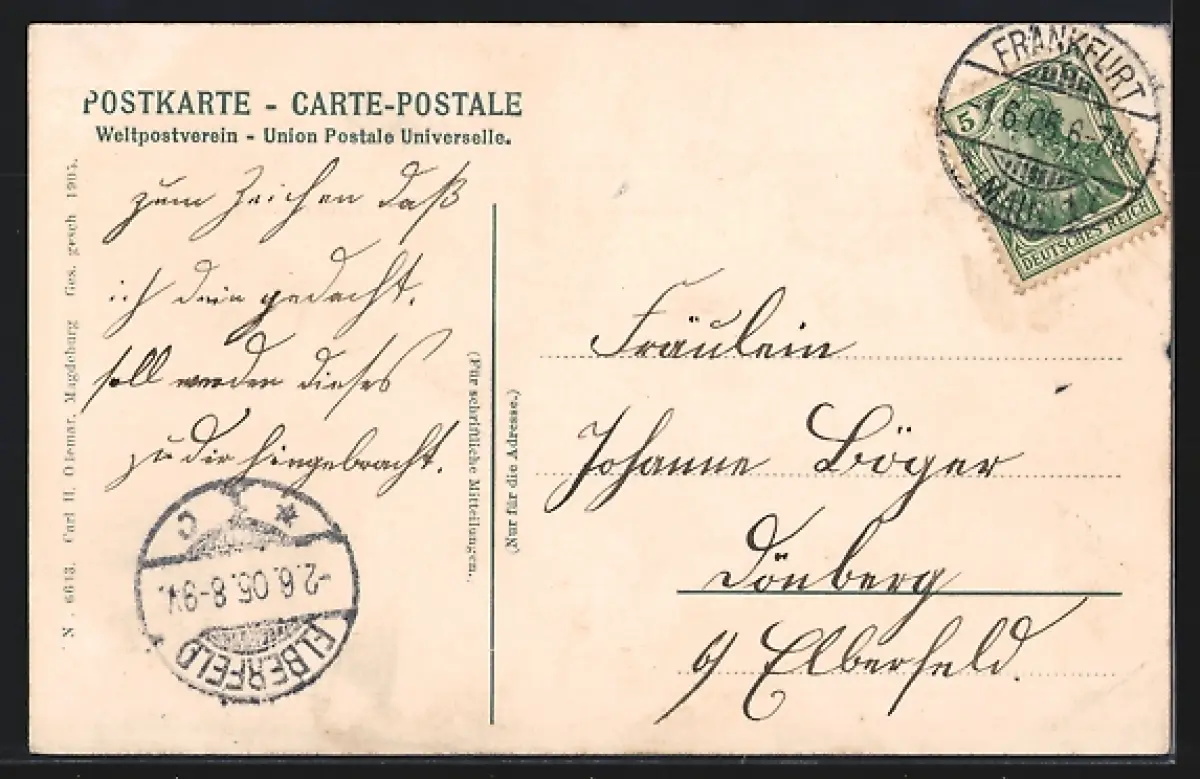 POSTKARTE - CARTE-POSTALE
Weltpostverein - Union Postale Universelle.
zum Zeichen daß
ich dein gedacht,
soll werden dieses
zu dir hingebracht.
ELBERFELD
-2.6.05.8-9V.
* * C
N . 6643. Carl H. Odemar, Magdeburg Ges. gesch 1905.
(Für schriftliche Mitteilungen.
(Nur für die Adresse.)
FRANKFURT
6.05.6-7
MAIN 1
5
DEUTSCHES REICH
Fräulein
Johanne Böger
Dönberg
Elberfeld.